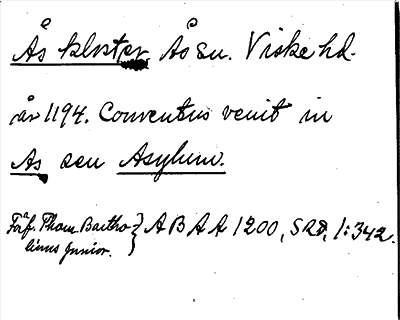 Ås kloster Ås sn. Viske hd.
år 1194. Conventus venit in
As seu Asylum.
Förf. Thom. Bartho- } A B A A 1200, SRD, 1:342.
linus Junior.